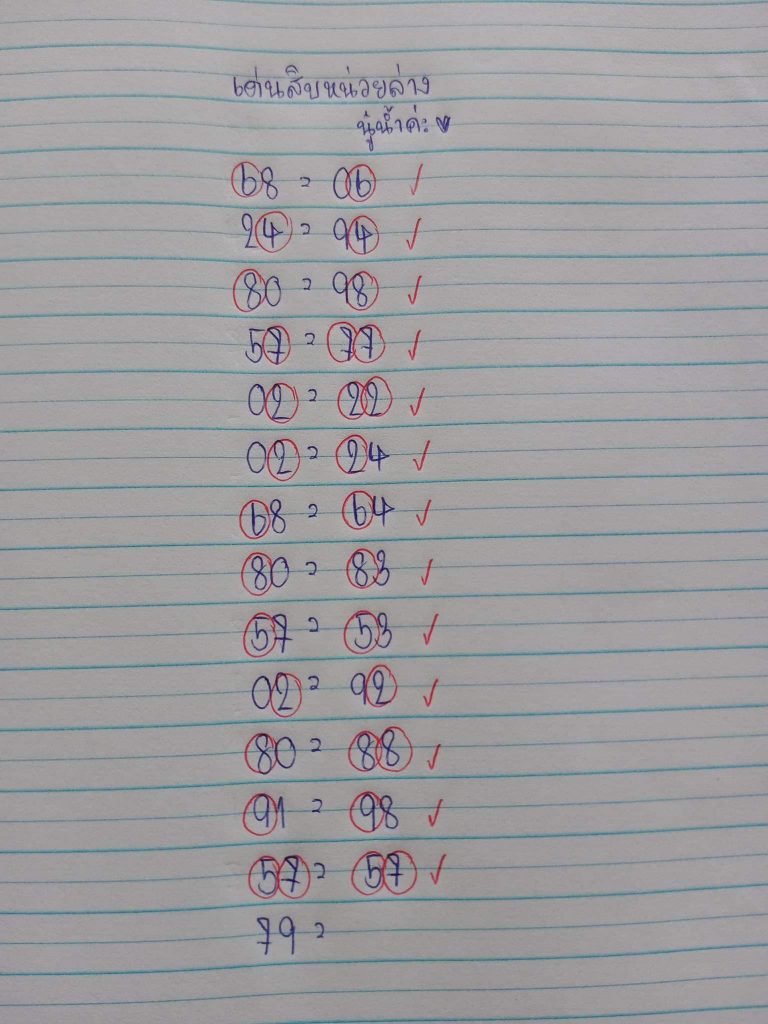 เด่นสิบหน่วยล่าง
นู๋น้ำค่ะ ♥
68 = 06 ✓
24 = 94 ✓
80 = 98 ✓
57 = 77 ✓
02 = 22 ✓
02 = 24 ✓
68 = 64 ✓
80 = 83 ✓
57 = 53 ✓
02 = 92 ✓
80 = 88 ✓
91 = 98 ✓
57 = 57 ✓
79 =